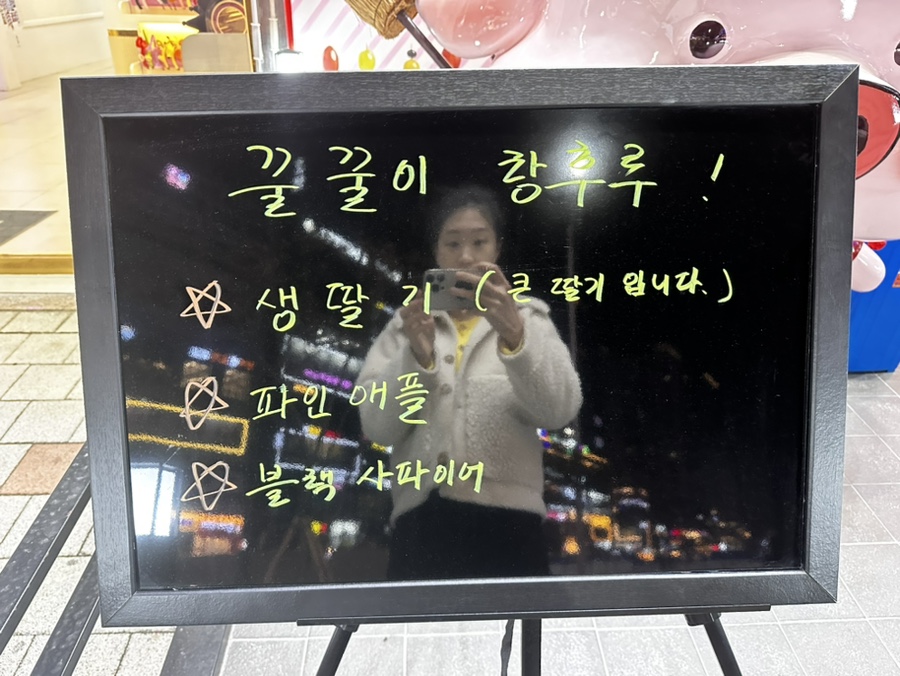 꿀꿀이 황후루 !
☆ 생딸기 (큰 딸기 입니다.)
☆ 파인애플
☆ 블랙 사파이어